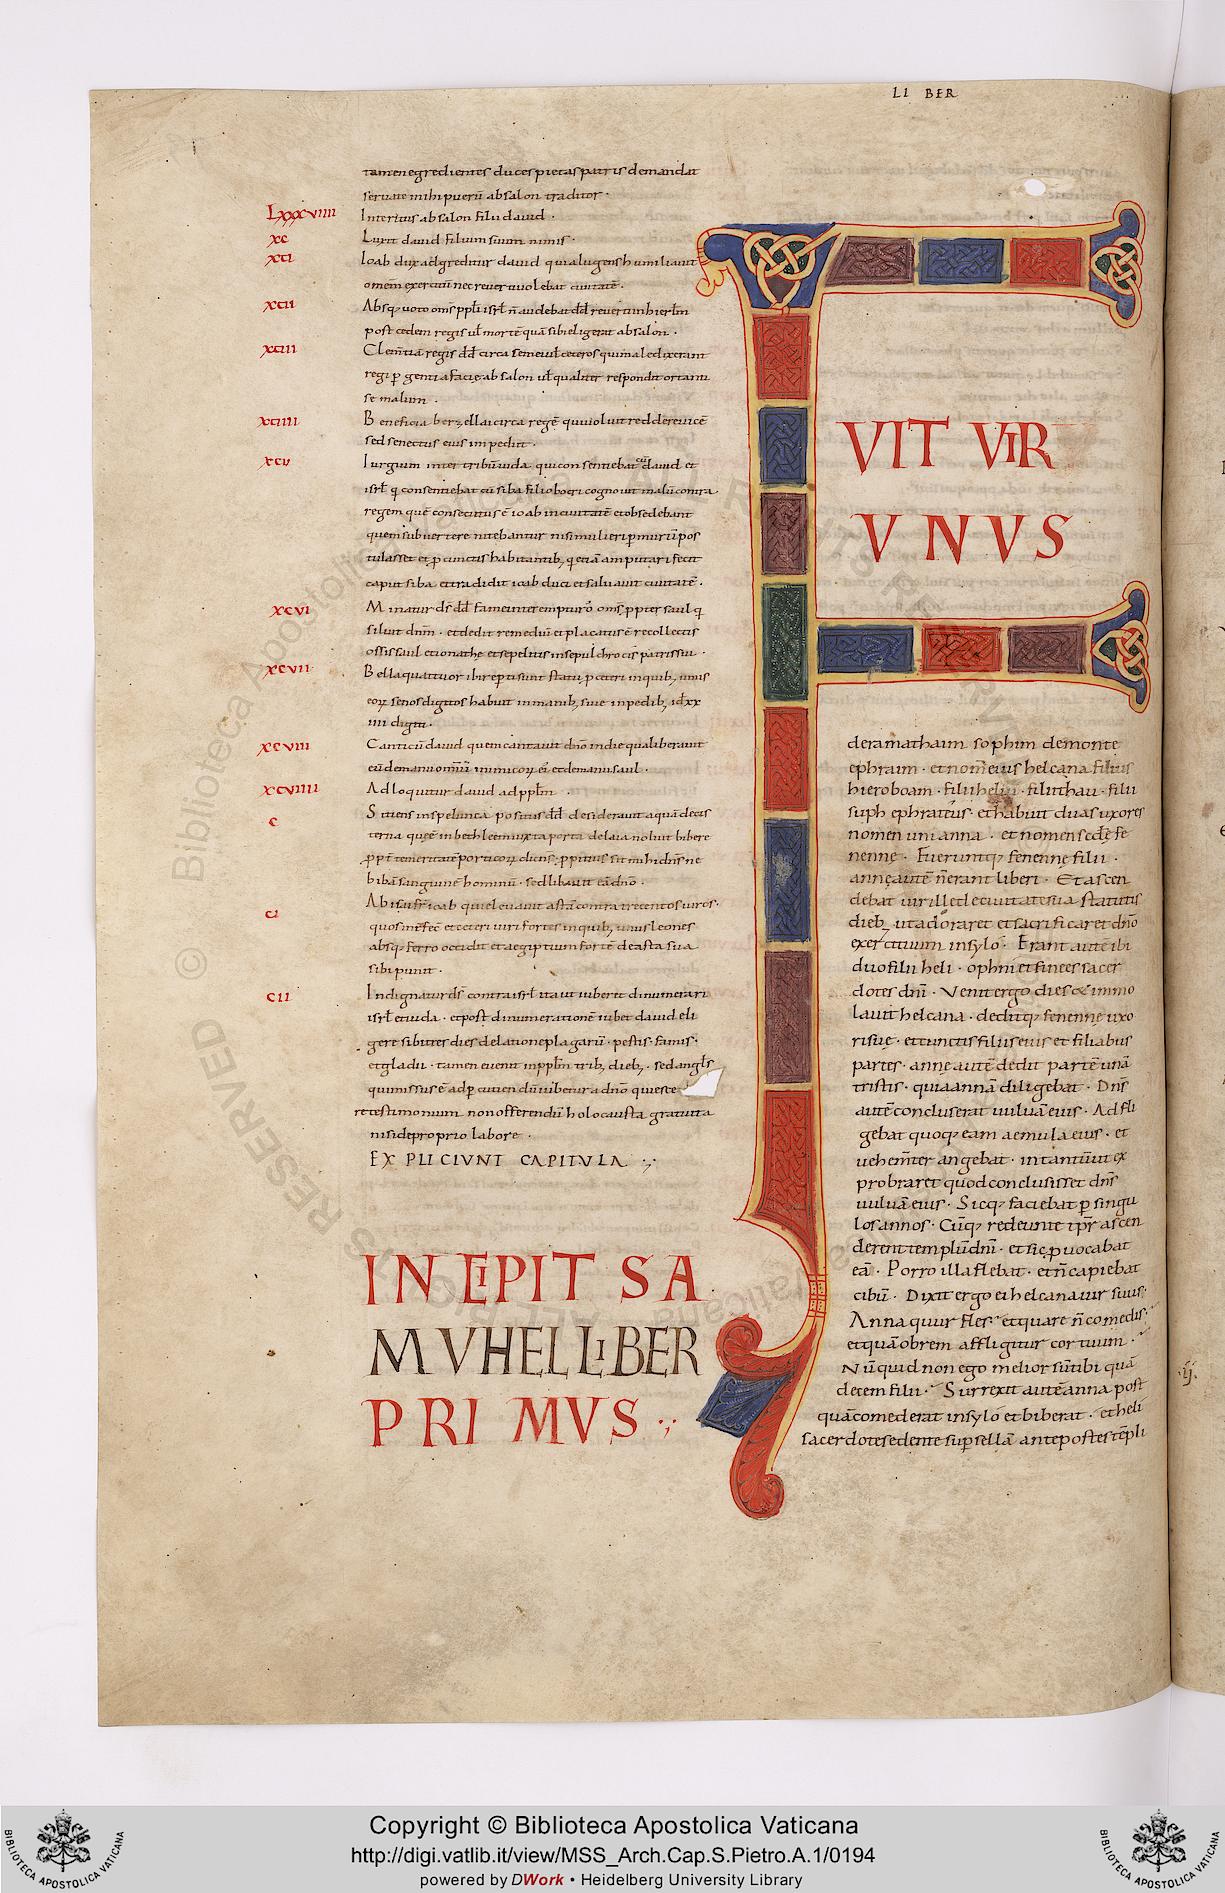 LI BER
tamen egredientes duces pietas patris demandat
seruate mihi puerū absalon traditor ·
LXXXVIIII Interitus absalon filii dauid ·
XC Luxit dauid filium suum nimis ·
XCI Ioab dux adgreditur dauid quia lugens humiliauit
omem exercitū nec reuerti uolebat ciuitatē ·
XCII Absq; uoto oms ppli isrl n̄ audebat dd̄ reuerti in hierlm
post cedem regis ul mortē quā sibi eligerat absalon ·
XCIII Clem̄tiā regis dd̄ circa semei ul ceteros qui maledixerant
regi
se malum ·
XCIIII Beneficia berzellai circa regē qui uoluit reddere uicē
sed senectus eius impediit ·
XCV Iurgium inter tribū iuda qui consentiebat cū dauid et
isrl q consentiebat cū siba filio bocri cognouit malū contra
regem quē consecutus ē ioab in ciuitatē et obsedebant
quem subuertere nitebantur nisi mulier p murū pos
tulasset et p cunctis habitantib; q etiā amputari fecit
caput siba et tradidit ioab duci et saluauit ciuitatē ·
XCVI Minatur ds dd̄ fame interempturō oms ppter saul q
siluit dnm · et dedit remediū et placatus ē recollectis
ossis saul et ionathe et sepeliuit in sepulchro cis patris sui ·
XCVII Bella quattuor ibi repti sunt statu pceteri in quib; unus
eorum senos digitos habuit in manib; siue in pedib; id xx
IIII digiti ·
XCVIII Canticū dauid quem cantauit dn̄o in die qua liberauit
eū de manu omniū inimicorum ei et de manu saul ·
XCVIIII Adloquitur dauid ad pplm ·
C Sitiens in spelunca positus dd̄ desiderauit aquā de cis
terna que ē in bethleem iuxta porta de laia noluit bibere
ppt temeritatē portitorum dicens · ppitius sit mihi dn̄s ne
bibā sanguinē hominū · sed libauit eā dn̄o ·
CI Abisai fr ioab qui eleuauit astā contra trecentos uiros ·
quos interfec et ceteri uiri fortes in quib; unus leones
absq; ferro occidit et aegiptium fortē de asta sua
sibi puniit ·
CII Indignatur ds contra isrl ita ut iuberet dinumerari
isrl et iuda · et post dinumerationē iubet dauid eli
gere sibi tres dies de latione plagarū · pestis · famis ·
et gladii · tamen euenit in pplm trib; dieb; · sed angls
qui missus ē ad pcutiendū iubetur a dn̄o quiesce
re testimonium non offerendū holocausta gratuita
nisi de proprio labore ·
EXPLICIUNT CAPITULA
INCIPIT SA
MUHEL LIBER
PRIMUS
F
UIT VIR
UNUS
de ramathaim sophim de monte
ephraim · et nom̄ eius helcana filius
hieroboam · filii heliu · filii thau · filii
suph ephrateus · et habuit duas uxores
nomen uni anna · et nomen sedē fe
nennę · Fueruntq; fenennę filii ·
annę autē n̄ erant liberi · Et ascen
debat uir ille de ciuitate sua statutis
dieb; ut adoraret et sacrificaret dn̄o
exercituum in sylo · Erant autē ibi
duo filii heli · ophni et finees sacer
dotes dn̄i · Venit ergo dies et immo
lauit helcana · deditq; fenennę uxo
ri suę · et cunctis filiis eius et filiabus
partes · annę autē dedit partē unā
tristis · quia annā diligebat · Dn̄s
autē concluserat uuluā eius · Adfli
gebat quoq; eam aemula eius · et
uehem̄ter angebat · in tantū ut ex
probraret quod conclusisset dn̄s
uuluā eius · Sicq; faciebat p singu
los annos · Cūq; redeunte tpr ascen
derent templū dn̄i · et sic puocabat
eā · Porro illa flebat · et n̄ capiebat
cibū · Dixit ergo ei helcana uir suus ·
Anna quur fles · et quare n̄ comedis ·
et quā obrem affligitur cor tuum ·
Nūquid non ego melior sū tibi quā
decem filii · Surrexit autē anna post
quā comederat in sylo et biberat · et heli
sacerdote sedente sup sellā ante postes tēpli
Copyright © Biblioteca Apostolica Vaticana
http://digi.vatlib.it/view/MSS_Arch.Cap.S.Pietro.A.1/0194
powered by DWork • Heidelberg University Library
BIBLIOTECA APOSTOLICA VATICANA
BIBLIOTECA APOSTOLICA VATICANA